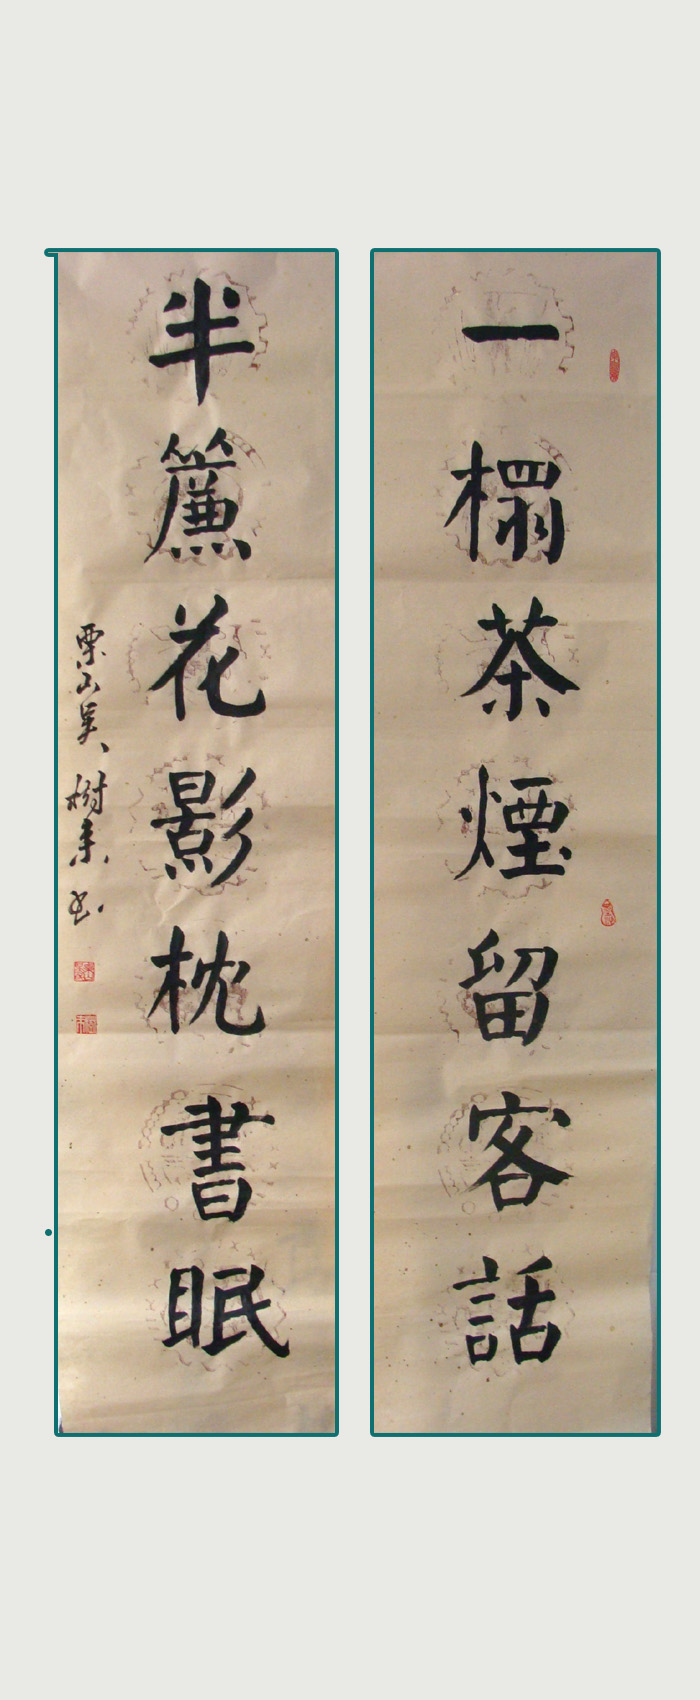 一榻茶煙留客話
半簾花影枕書眠
栗山吳樹本书